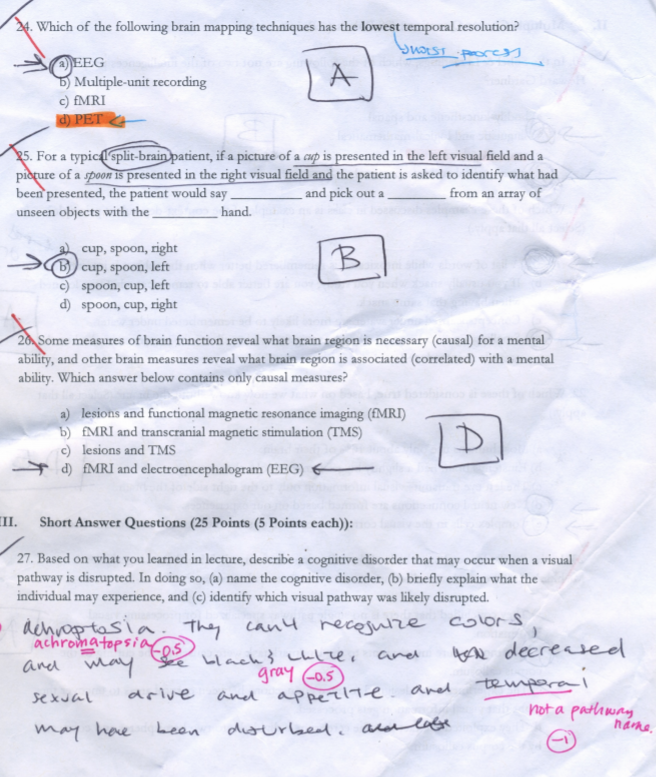 24. Which of the following brain mapping techniques has the lowest temporal resolution?
a) EEG
b) Multiple-unit recording
c) fMRI
d) PET
A
25. For a typical split-brain patient, if a picture of a cup is presented in the left visual field and a
picture of a spoon is presented in the right visual field and the patient is asked to identify what had
been presented, the patient would say __________ and pick out a __________ from an array of
unseen objects with the __________ hand.
a) cup, spoon, right
b) cup, spoon, left
c) spoon, cup, left
d) spoon, cup, right
B
26. Some measures of brain function reveal what brain region is necessary (causal) for a mental
ability, and other brain measures reveal what brain region is associated (correlated) with a mental
ability. Which answer below contains only causal measures?
a) lesions and functional magnetic resonance imaging (fMRI)
b) fMRI and transcranial magnetic stimulation (TMS)
c) lesions and TMS
d) fMRI and electroencephalogram (EEG)
D
III. Short Answer Questions (25 Points (5 Points each)):
27. Based on what you learned in lecture, describe a cognitive disorder that may occur when a visual
pathway is disrupted. In doing so, (a) name the cognitive disorder, (b) briefly explain what the
individual may experience, and (c) identify which visual pathway was likely disrupted.
achroptosia. They can't recognize colors,
achromatopsia -0.5
and may see black & white, and decreased
gray -0.5
sexual drive and appetite. and temporal
not a pathway name.
may have been disturbed.
-1